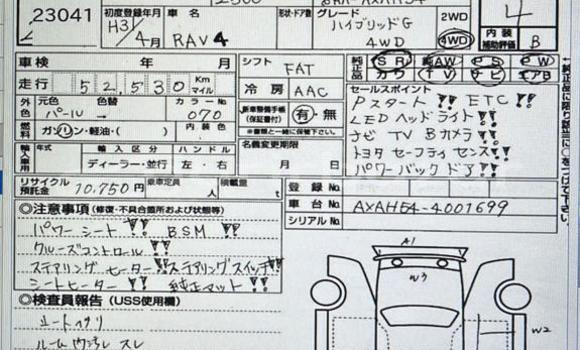 23041 初度登録年月 H31/4月 車名 RAV4 形状・ドア数 グレード ハイブリッドG 4WD 2WD 4WD 4 内装 補助評価 B
車検 年 月 シフト FAT 純正品 SR AW PS PW
走行 52,530 Km マイル 冷房 AAC カワ TV ナビ エアB
外色 元色 パール 色替 カラーNo 070 新車整備手帳(保証書付) 有・無 セールスポイント
Pスタート!! ETC!!
燃料 ガソリン・軽油・( ) 内装色 ※書類と一緒に保管下さい LEDヘッドライト!!
輸入車用 年式 輸入区分 ハンドル 名義変更期限 ナビ TV Bカメラ!!
ディーラー・並行 左・右 月 日 トヨタ セーフティ センス!!
パワー バック ドア!!
リサイクル預託金 10,750円 乗車定員 人 積載量 t 登録No
◎注意事項(修復・不具合箇所および状態等) 車台No AXAH54-4001699
パワーシート!! BSM!! シリアルNo
クルーズコントロール!!
ステアリングヒーター!! ステアリングスイッチ!!
シートヒーター!! 純正マット!!
◎検査員報告(USS使用欄)
ルーム内汚レ スレ
A1
W3
W2